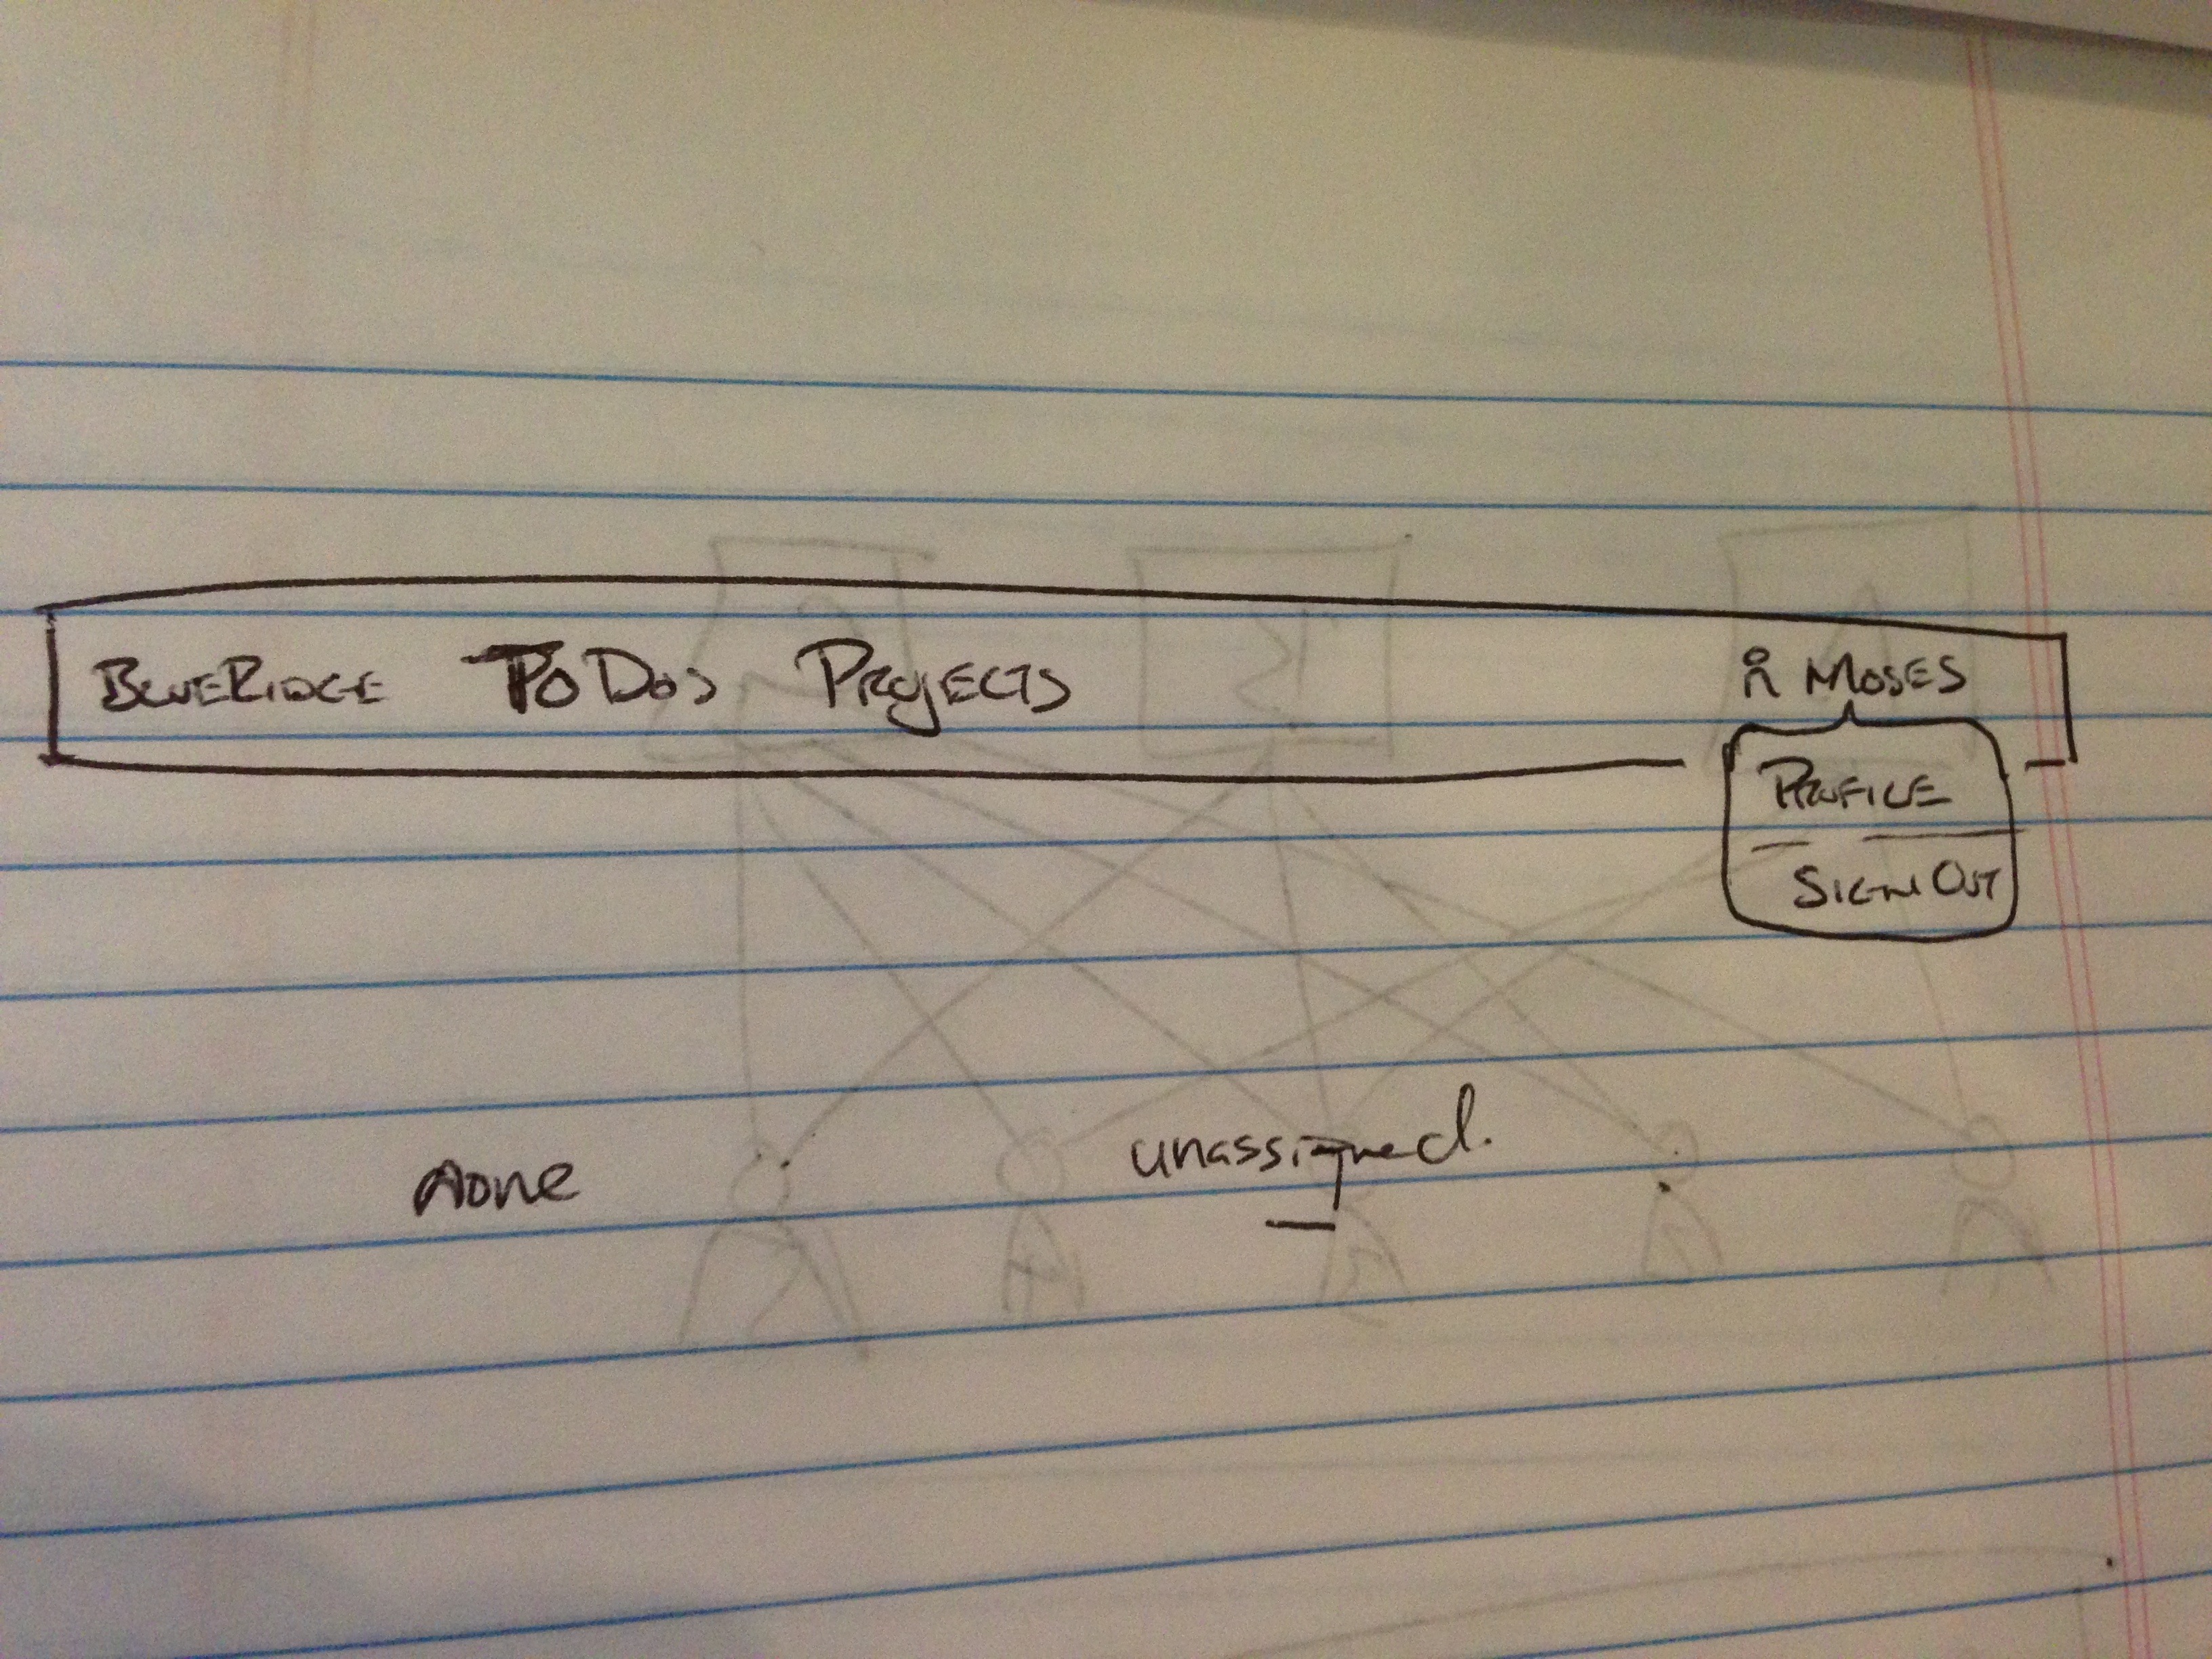 BlueRidge ToDos Projects Moses
Profile
Sign Out
done unassigned.